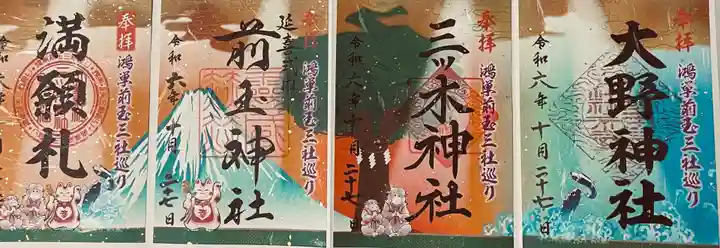 奉拝
鴻巣前玉三社巡り
大野神社
令和六年十月二十七日
奉拝
鴻巣前玉三社巡り
三ッ木神社
令和六年十月二十七日
奉拝
鴻巣前玉三社巡り
前玉神社
令和六年十月二七日
奉拝
鴻巣前玉三社巡り
満願札